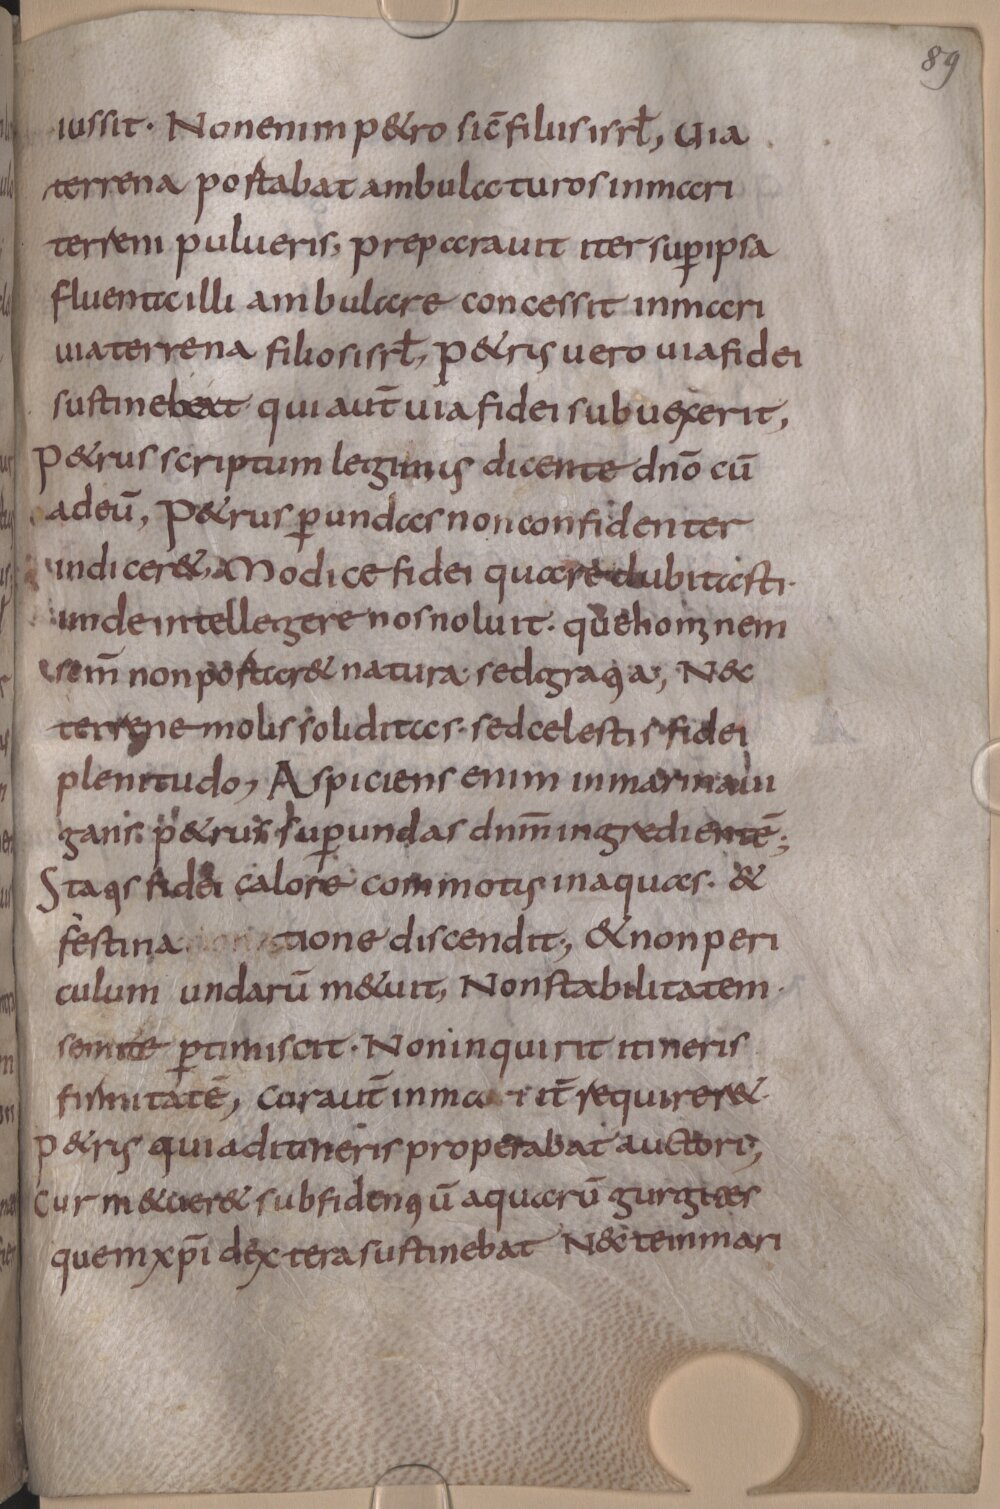 89
iussit. Non enim p&ro sic̄ filiis isrl̄, uia
terrena portabat ambulaturos in mari
terreni pulueris, preparauit iter sup̱ ipsa
fluenta illi ambulare concessit in mari
uia terrena filios isrl̄, P&ris uero uia fidei
sustinebat qui aut̄ uia fidei subuexerit,
P&rus scriptum legimus dicente dn̄o cū
ad eū, P&rus p̱ undas non confidenter
indicer&, Modice fidei quare dubitasti.
unde intellegere nos noluit. que hominem
sem̄ non portar& natura sed gracia, Nec
terrene molis soliditas. sed celestis fidei
plenitudo, Aspiciens enim in mari naui
gans p&rus sup̱ undas dnm̄ ingredientē;
Itaqs fidei calore commotis in aquas. &
festina tione discendit, & non peri
culum undarū m&uit, Non stabilitatem
semite p̱timiscit. Non inquirit itineris
firmitatē, Cur aut̄ in ma it̄ requirer&
P&ris qui ad itineris properabat auctori,
Cur m&uer& sub fidenciū aquarū gurgites
quem xp̄i dextera sustinebat Nec tem mari